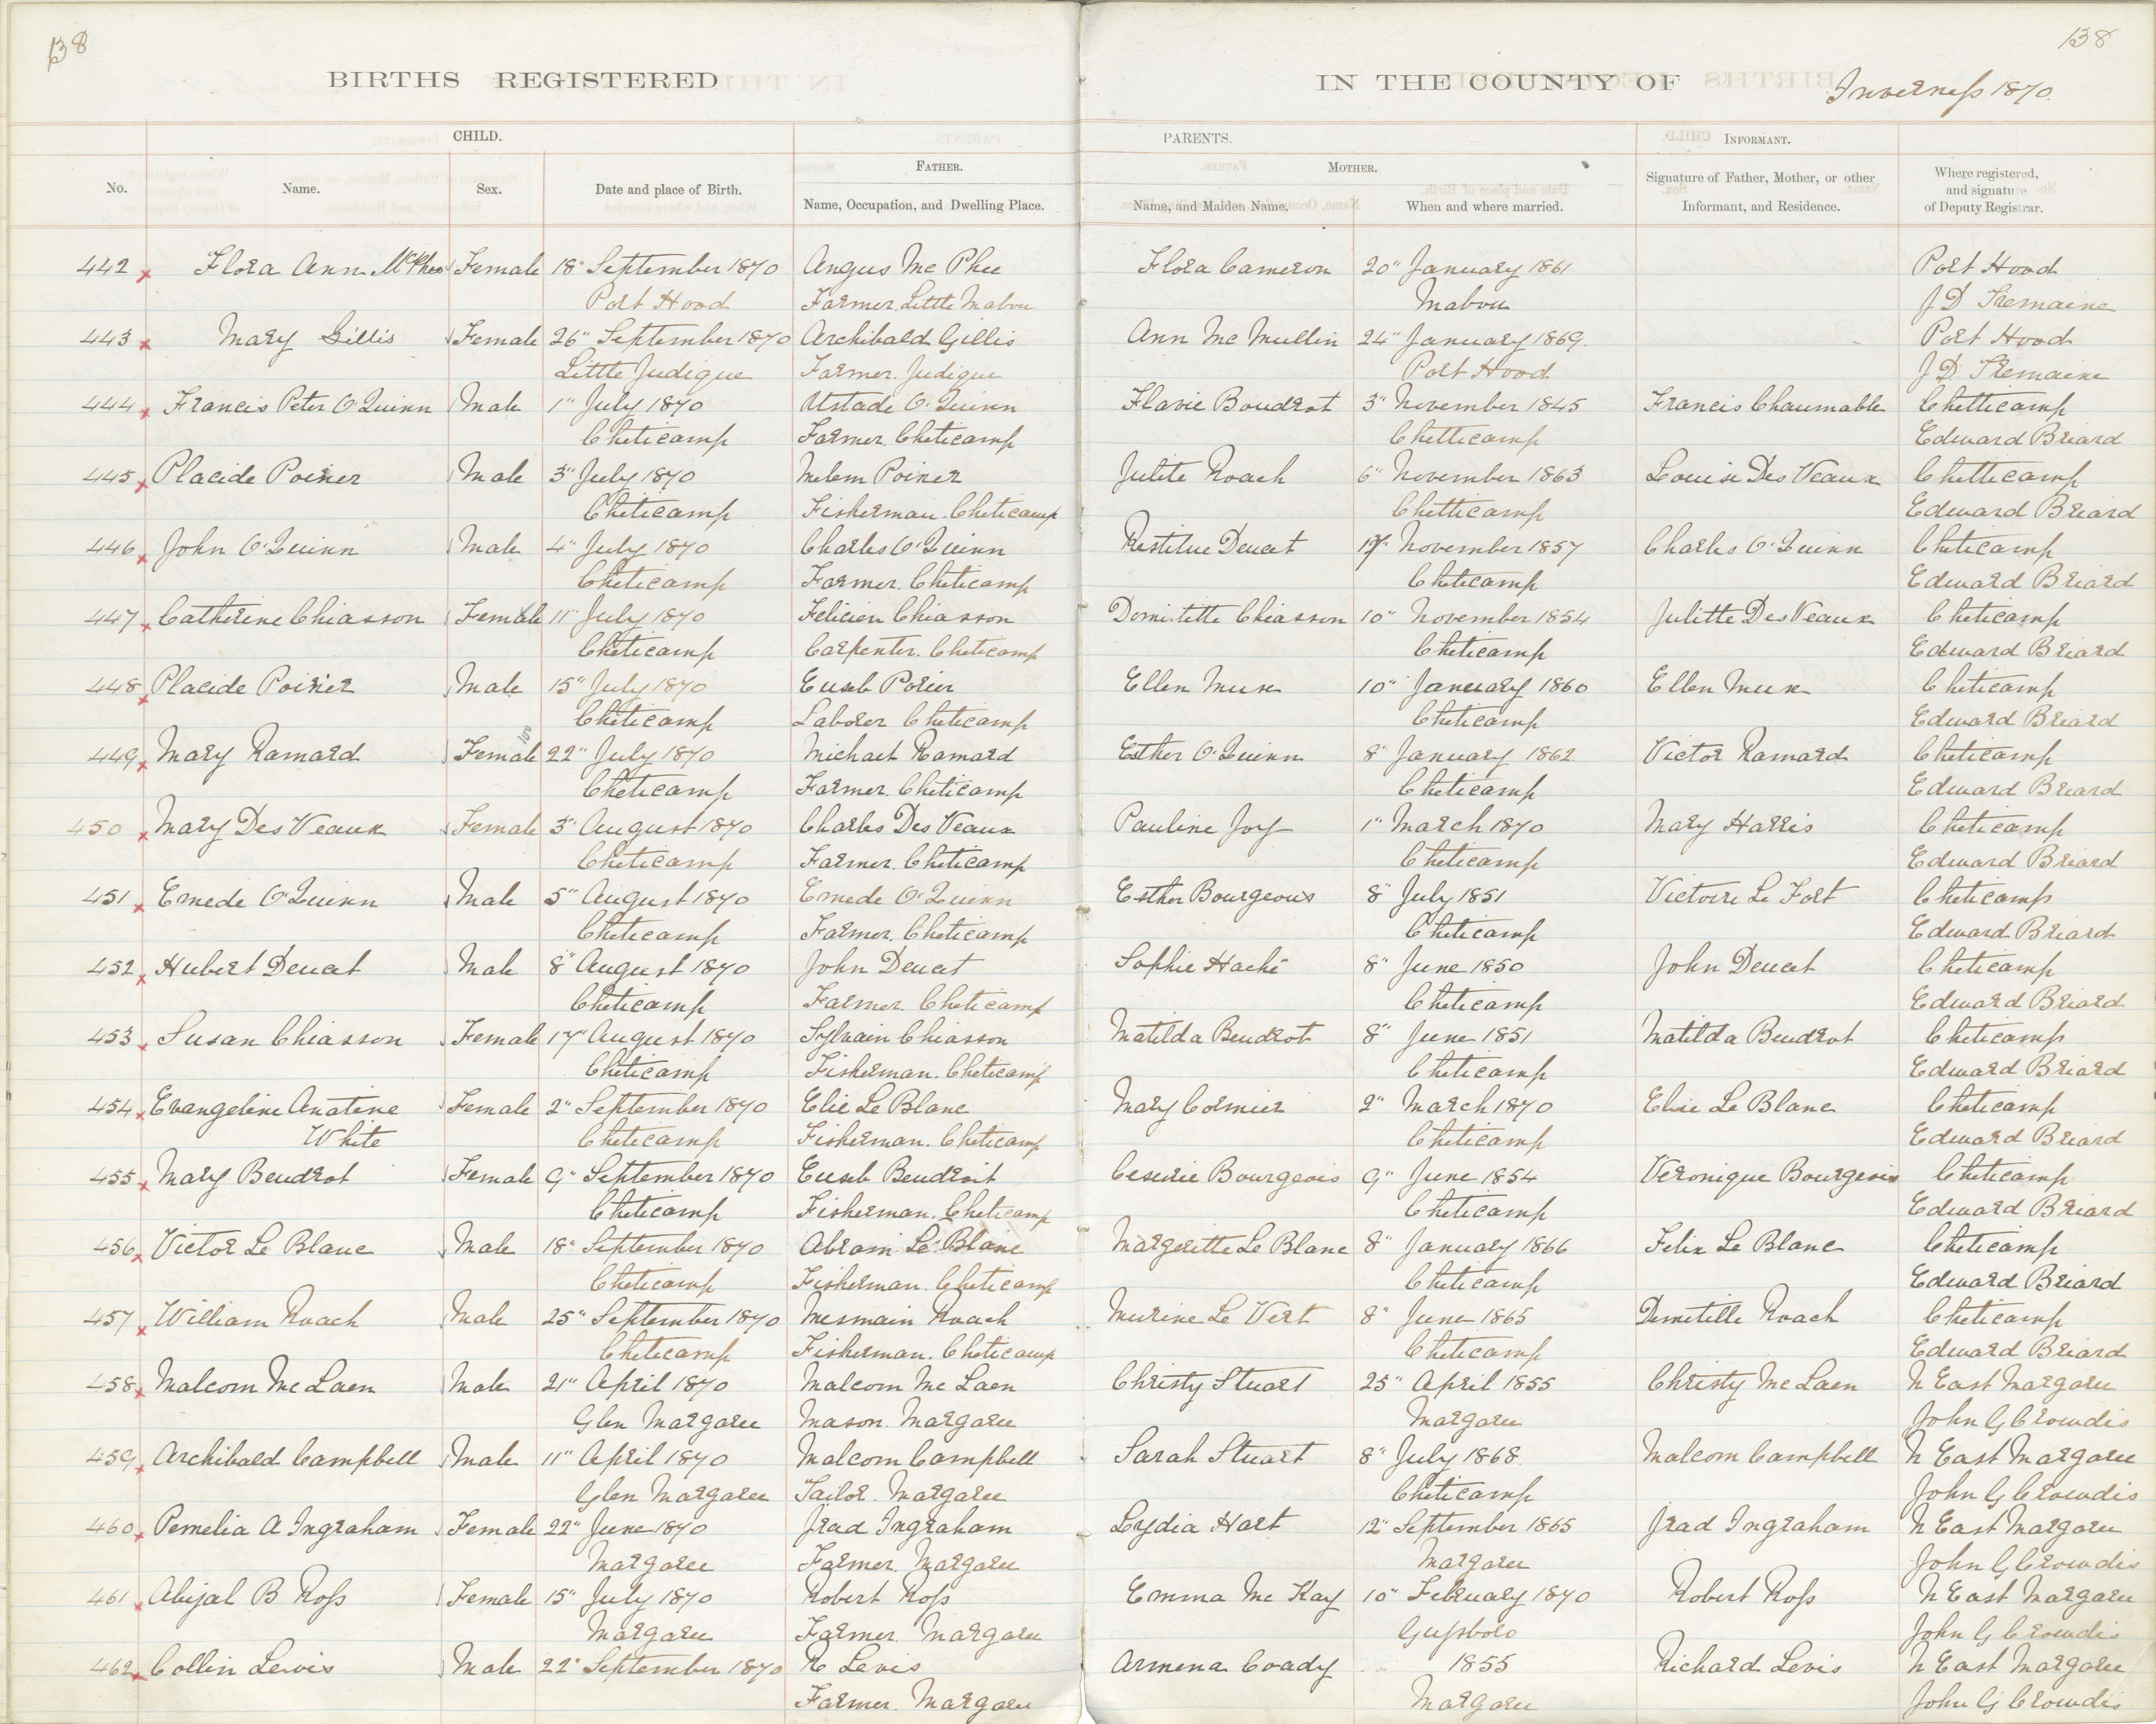 138
138
BIRTHS REGISTERED IN THE COUNTY OF Inverness 1870
CHILD. PARENTS. INFORMANT.
No. Name. Sex. Date and place of Birth. FATHER. Name, Occupation, and Dwelling Place. Name, and Maiden Name. MOTHER. When and where married. Signature of Father, Mother, or other Informant, and Residence. Where registered, and signature of Deputy Registrar.
442 Flora Ann McPhee Female 18" September 1870 Angus Mc Phee Flora Cameron 20" January 1861 Port Hood
Port Hood Farmer Little Mabou Mabou J D Tremaine
443 Mary Gillis Female 26" September 1870 Archibald Gillis Ann Mc Mullin 24" January 1869 Port Hood
Little Judique Farmer. Judique Port Hood J D Tremaine
444 Francis Peter O'Quinn Male 1" July 1870 Ustade O'Quinn Flavie Boudrot 3" November 1845 Francis Chaumable Chetticamp
Cheticamp Farmer. Cheticamp Chetticamp Edward Briard
445 Placide Poirier Male 3" July 1870 Melem Poirier Julite Roach 6" November 1863 Louise Des Veaux Chetticamp
Cheticamp Fisherman. Cheticamp Chetticamp Edward Briard
446 John O'Quinn Male 4" July 1870 Charles O'Quinn Restilue Deucet 17" November 1857 Charles O'Quinn Cheticamp
Cheticamp Farmer. Cheticamp Cheticamp Edward Briard
447 Catherine Chiasson Female 11" July 1870 Felicien Chiasson Domitette Chiasson 10" November 1854 Julitte Des Veaux Cheticamp
Cheticamp Carpenter. Cheticamp Cheticamp Edward Briard
448 Placide Poirier Male 15" July 1870 Euseb Porier Ellen Muse 10" January 1860 Ellen Muse Cheticamp
Cheticamp Laborer Cheticamp Cheticamp Edward Briard
449 Mary Ramard Female 22" July 1870 Michael Ramard Esther O'Quinn 8" January 1862 Victor Ramard Cheticamp
Cheticamp Farmer. Cheticamp Cheticamp Edward Briard
450 Mary Des Veaux Female 3" August 1870 Charles Des Veaux Pauline Joy 1" March 1870 Mary Harris Cheticamp
Cheticamp Farmer. Cheticamp Cheticamp Edward Briard
451 Emede O'Quinn Male 5" August 1870 Emede O'Quinn Esther Bourgeouis 8" July 1851 Victoire Le Fort Cheticamp
Cheticamp Farmer. Cheticamp Cheticamp Edward Briard
452 Hubert Deucet Male 8" August 1870 John Deucet Sophie Haché 8" June 1850 John Deucet Cheticamp
Cheticamp Farmer. Cheticamp Cheticamp Edward Briard
453 Susan Chiasson Female 17" August 1870 Sylvain Chiasson Matilda Beudrot 8" June 1851 Matilda Beudrot Cheticamp
Cheticamp Fisherman. Cheticamp Cheticamp Edward Briard
454 Evangeline Anatine Female 2" September 1870 Elie Le Blanc Mary Cormier 2" March 1870 Elise Le Blanc Cheticamp
White Cheticamp Fisherman. Cheticamp Cheticamp Edward Briard
455 Mary Beudrot Female 9" September 1870 Euseb Beudroit Ceserie Bourgeois 9" June 1854 Veronique Bourgeois Cheticamp
Cheticamp Fisherman. Cheticamp Cheticamp Edward Briard
456 Victor Le Blanc Male 18" September 1870 Abram Le Blanc Margeritte Le Blanc 8" January 1866 Felix Le Blanc Cheticamp
Cheticamp Fisherman. Cheticamp Cheticamp Edward Briard
457 William Roach Male 25" September 1870 Mesmain Roach Murine Le Vert 8" June 1865 Demetille Roach Cheticamp
Cheticamp Fisherman. Cheticamp Cheticamp Edward Briard
458 Malcom Mc Laen Male 21" April 1870 Malcom Mc Laen Christy Stuart 25" April 1855 Christy Mc Laen N East Margaree
Glen Margaree Mason. Margaree Margaree John G Crowdis
459 Archibald Campbell Male 11" April 1870 Malcom Campbell Sarah Stuart 8" July 1868 Malcom Campbell N East Margaree
Glen Margaree Tailor. Margaree Cheticamp John G Crowdis
460 Pemelia A Ingraham Female 22" June 1870 Jrad Ingraham Lydia Hart 12" September 1865 Jrad Ingraham N East Margaree
Margaree Farmer. Margaree Margaree John G Crowdis
461 Abijal B Ross Female 15" July 1870 Robert Ross Emma Mc Kay 10" February 1870 Robert Ross N East Margaree
Margaree Farmer. Margaree Guysboro John G Crowdis
462 Collin Lewis Male 22" September 1870 R Levis Armena Coady 1855 Richard Levis N East Margaree
Farmer. Margaree Margaree John G Crowdis